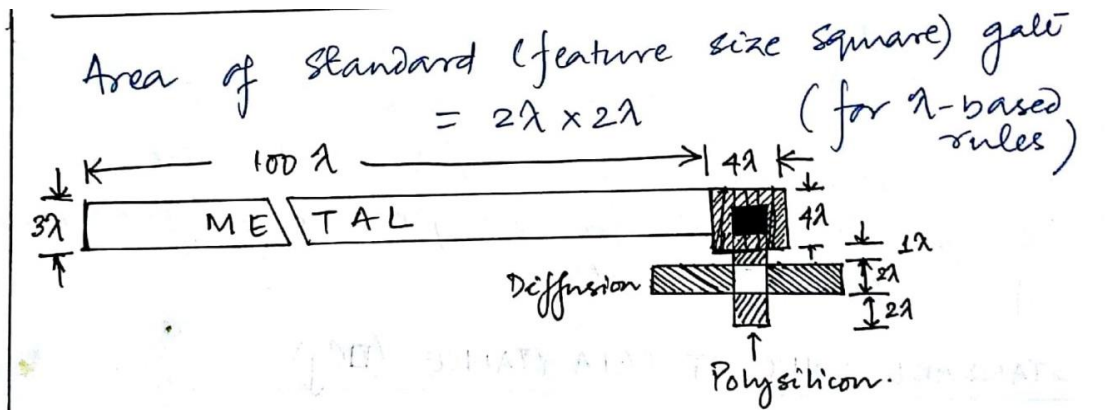 Area of standard (feature size square) gate
= 2λ × 2λ (for λ-based rules)
100 λ 4λ
3λ METAL 4λ
1λ
Diffusion 2λ
2λ
Polysilicon.